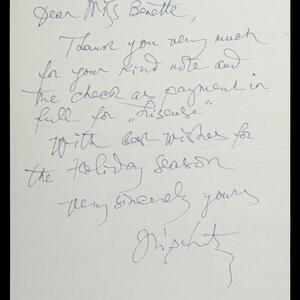 Dear Miss Benette,
Thank you very much
for your kind note and
the check as payment in
full for "
With best wishes for
the Holiday season
very sincerely yours